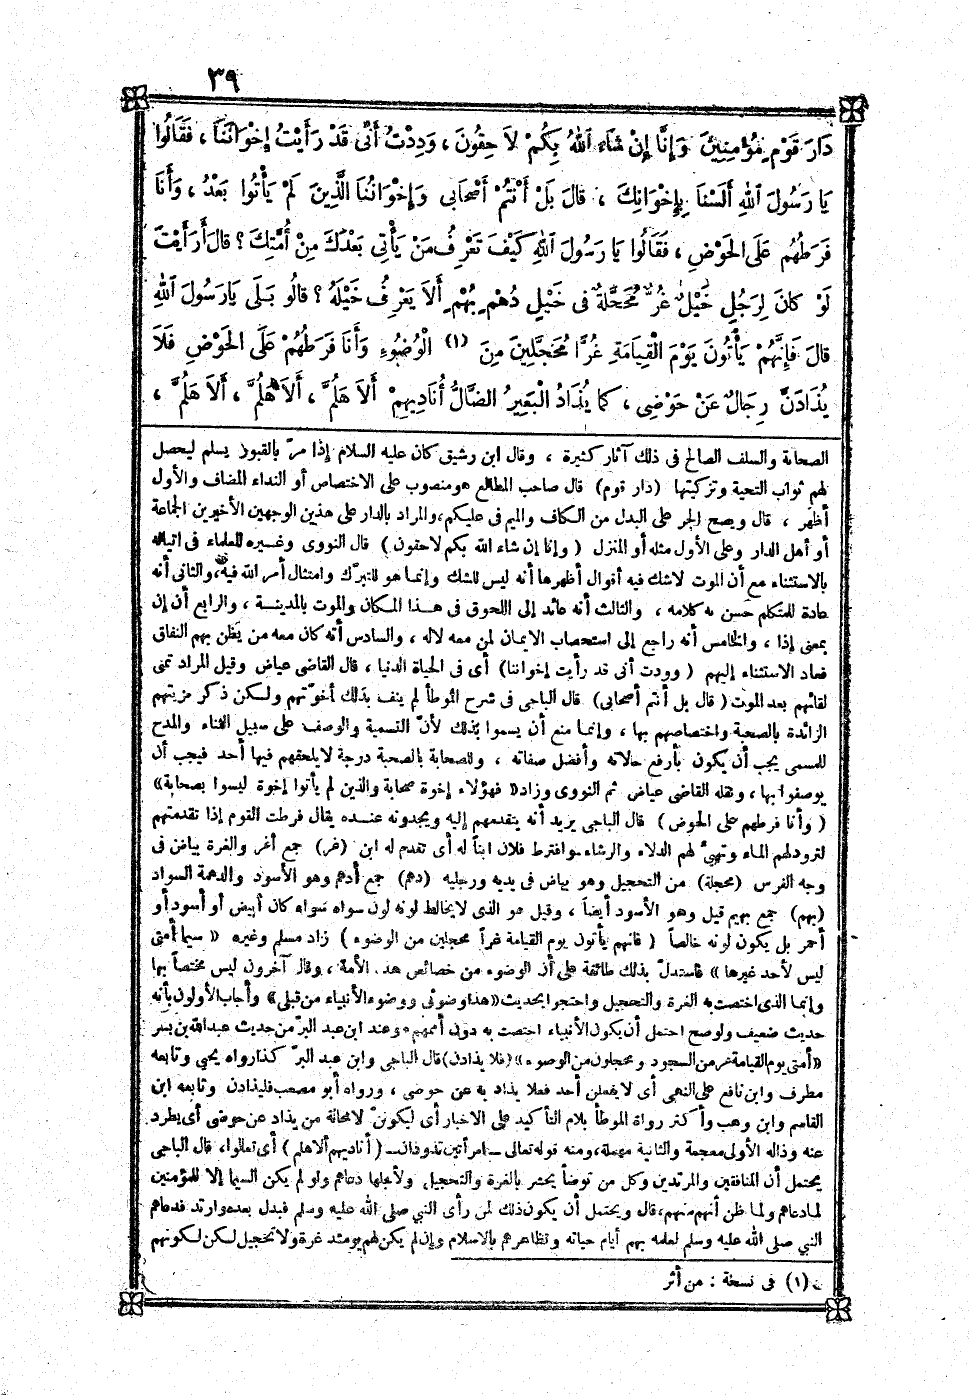 ٣٩
دَارَ قَوْمٍ مُؤْمِنِينَ وَإِنَّا إِنْ شَاءَ اللهُ بِكُمْ لاَحِقُونَ ، وَدِدْتُ أَنِّى قَدْ رَأَيْتُ إِخْوَانَنَا ، فَقَالُوا
يَا رَسُولَ اللهِ أَلَسْنَا بِإِخْوَانِكَ ، قَالَ بَلْ أَنْتُمْ أَصْحَابِى وَإِخْوَانُنَا الَّذِينَ لَمْ يَأْتُوا بَعْدُ ، وَأَنَا
فَرَطُهُمْ عَلَى الْحَوْضِ ، فَقَالُوا يَا رَسُولَ اللهِ كَيْفَ تَعْرِفُ مَنْ يَأْتِى بَعْدَكَ مِنْ أُمَّتِكَ ؟ قَالَ أَرَأَيْتَ
لَوْ كَانَ لِرَجُلٍ خَيْلٌ غُرٌّ مُحَجَّلَةٌ فى خَيْلٍ دُهْمٍ بُهْمٍ أَلاَ يَعْرِفُ خَيْلَهُ ؟ قَالُو بَلَى يَارَسُولَ اللهِ
قالَ فَإِنَّهُمْ يَأْتُونَ يَوْمَ الْقِيَامَةِ غُرًّا مُحَجَّلِينَ مِنَ (١) الْوُضُوءِ وَأَنَا فَرَطُهُمْ عَلَى الْحَوْضِ فَلاَ
يُذَادَنَّ رِجَالٌ عَنْ حَوْضِى ، كما يُذَادُ الْبَعِيرُ الضَّالُّ أُنَادِيهِمْ أَلاَ هَلُمَّ ، أَلاَ هَلُمَّ ، أَلاَ هَلُمَّ ،
الصحابة والسلف الصالح فى ذلك آثار كثيرة ، وقال ابن رشيق كان عليه السلام إذا مرّ بالقبور يسلم ليحصل
لهم ثواب التحية وتزكيتها (دار قوم) قال صاحب المطالع هو منصوب على الاختصاص أو النداء المضاف والأول
أظهر ، قال ويصح الجر على البدل من الكاف والميم فى عليكم، والمراد بالدار على هذين الوجهين الأخيرين الجماعة
أو أهل الدار وعلى الأول مثله أو المنزل (وإنا إن شاء الله بكم لاحقون) قال النووى وغيره للعلماء فى اتيانه
بالاستثناء مع أن الموت لاشك فيه أقوال أظهرها أنه ليس للشك وإنما هو للتبرّك وامتثال أمر الله فيه، والثانى أنه
عادة للمتكلم حَسن به كلامه ، والثالث أنه عائد إلى اللحوق فى هذا المكان والموت بالمدينة ، والرابع أن إن
بمعنى إذا ، والخامس أنه راجع إلى استصحاب الايمان لمن معه لاله ، والسادس أنه كان معه من يظن بهم النفاق
فعاد الاستثناء إليهم (ووددت أنى قد رأيت إخواننا) أى فى الحياة الدنيا ، قال القاضى عياض وقيل المراد تمنى
لقائهم بعد الموت (قال بل أنتم أصحابى) قال الباجى فى شرح الموطأ لم ينف بذلك أخوّتهم ولكن ذكر مزيتهم
الزائدة بالصحبة واختصاصهم بها ، وإنما منع أن يسموا بذلك لأنّ التسمية والوصف على سبيل الثناء والمدح
للمسمى يجب أن يكون بأرفع حالاته وأفضل صفاته ، وللصحابة بالصحبة درجة لايلحقهم فيها أحد فيجب أن
يوصفوا بها ، ونقله القاضى عياض ثم النووى وزاد« فهؤلاء إخوة صحابة والذين لم يأتوا إخوة ليسوا بصحابة»
(وأنا فرطهم على الحوض) قال الباجى يريد أنه يتقدمهم إليه ويجدونه عنده يقال فرطت القوم إذا تقدمتهم
لترود لهم الماء وتهيئ لهم الدلاء والرشاء وافترط فلان ابناً له أى تقدم له ابن (غر) جمع أغر والغرة بياض فى
وجه الفرس (محجلة) من التحجيل وهو بياض فى يديه ورجليه (دهم) جمع أدهم وهو الأسود والدهمة السواد
(بهم) جمع بهيم قيل وهو الأسود أيضاً ، وقيل هو الذى لا يخالط لونه لون سواه سواء كان أبيض أو أسود أو
أحمر بل يكون لونه خالصاً (فانهم يأتون يوم القيامة غراً محجلين من الوضوء) زاد مسلم وغيره « سيما أمتى
ليس لأحد غيرها » فاستدلّ بذلك طائفة على أن الوضوء من خصائص هذه الأمة ، وقال آخرون ليس مختصاً بها
وإنما الذى اختصت به الغرة والتحجيل واحتجوا بحديث «هذا وضوئى ووضوء الأنبياء من قبلى» وأجاب الأولون بأنه
حديث ضعيف ولو صح احتمل أن يكون الأنبياء اختصت به دون أممهم، وعند ابن عبد البرّ من حديث عبدالله بن بسر
«أمتى يوم القيامة غر من السجود ومحجلون من الوضوء» (فلا يذادن) قال الباجى وابن عبد البرّ كذا رواه يحيى وتابعه
مطرف وابن نافع على النهى أى لا يفعلن أحد فعلا يذاد به عن حوضى ، ورواه أبو مصعب فليذادن وتابعه ابن
القاسم وابن وهب وأكثر رواة الموطأ بلام التأكيد على الاخبار أى ليكوننّ لامحالة من يذاد عن حوضى أى يطرد
عنه وذاله الأولى معجمة والثانية مهملة، ومنه قوله تعالى ــ امرأتين تذودان ــ (أناديهم ألاهلم) أى تعالوا، قال الباجى
يحتمل أن المنافقين والمرتدين وكل من توضأ يحشر بالغرة والتحجيل ولأجلها دعاهم ولو لم يكن السيما إلا للمؤمنين
لما دعاهم ولما ظن أنهم منهم، قال ويحتمل أن يكون ذلك لمن رأى النبي صلى الله عليه وسلم فبدل بعده وارتد فدعاهم
النبي صلى الله عليه وسلم لعلمه بهم أيام حياته وتظاهرهم بالاسلام وإن لم يكن لهم يومئذ غرة ولا تحجيل لكن لكونهم
(١) فى نسخة : من أثر